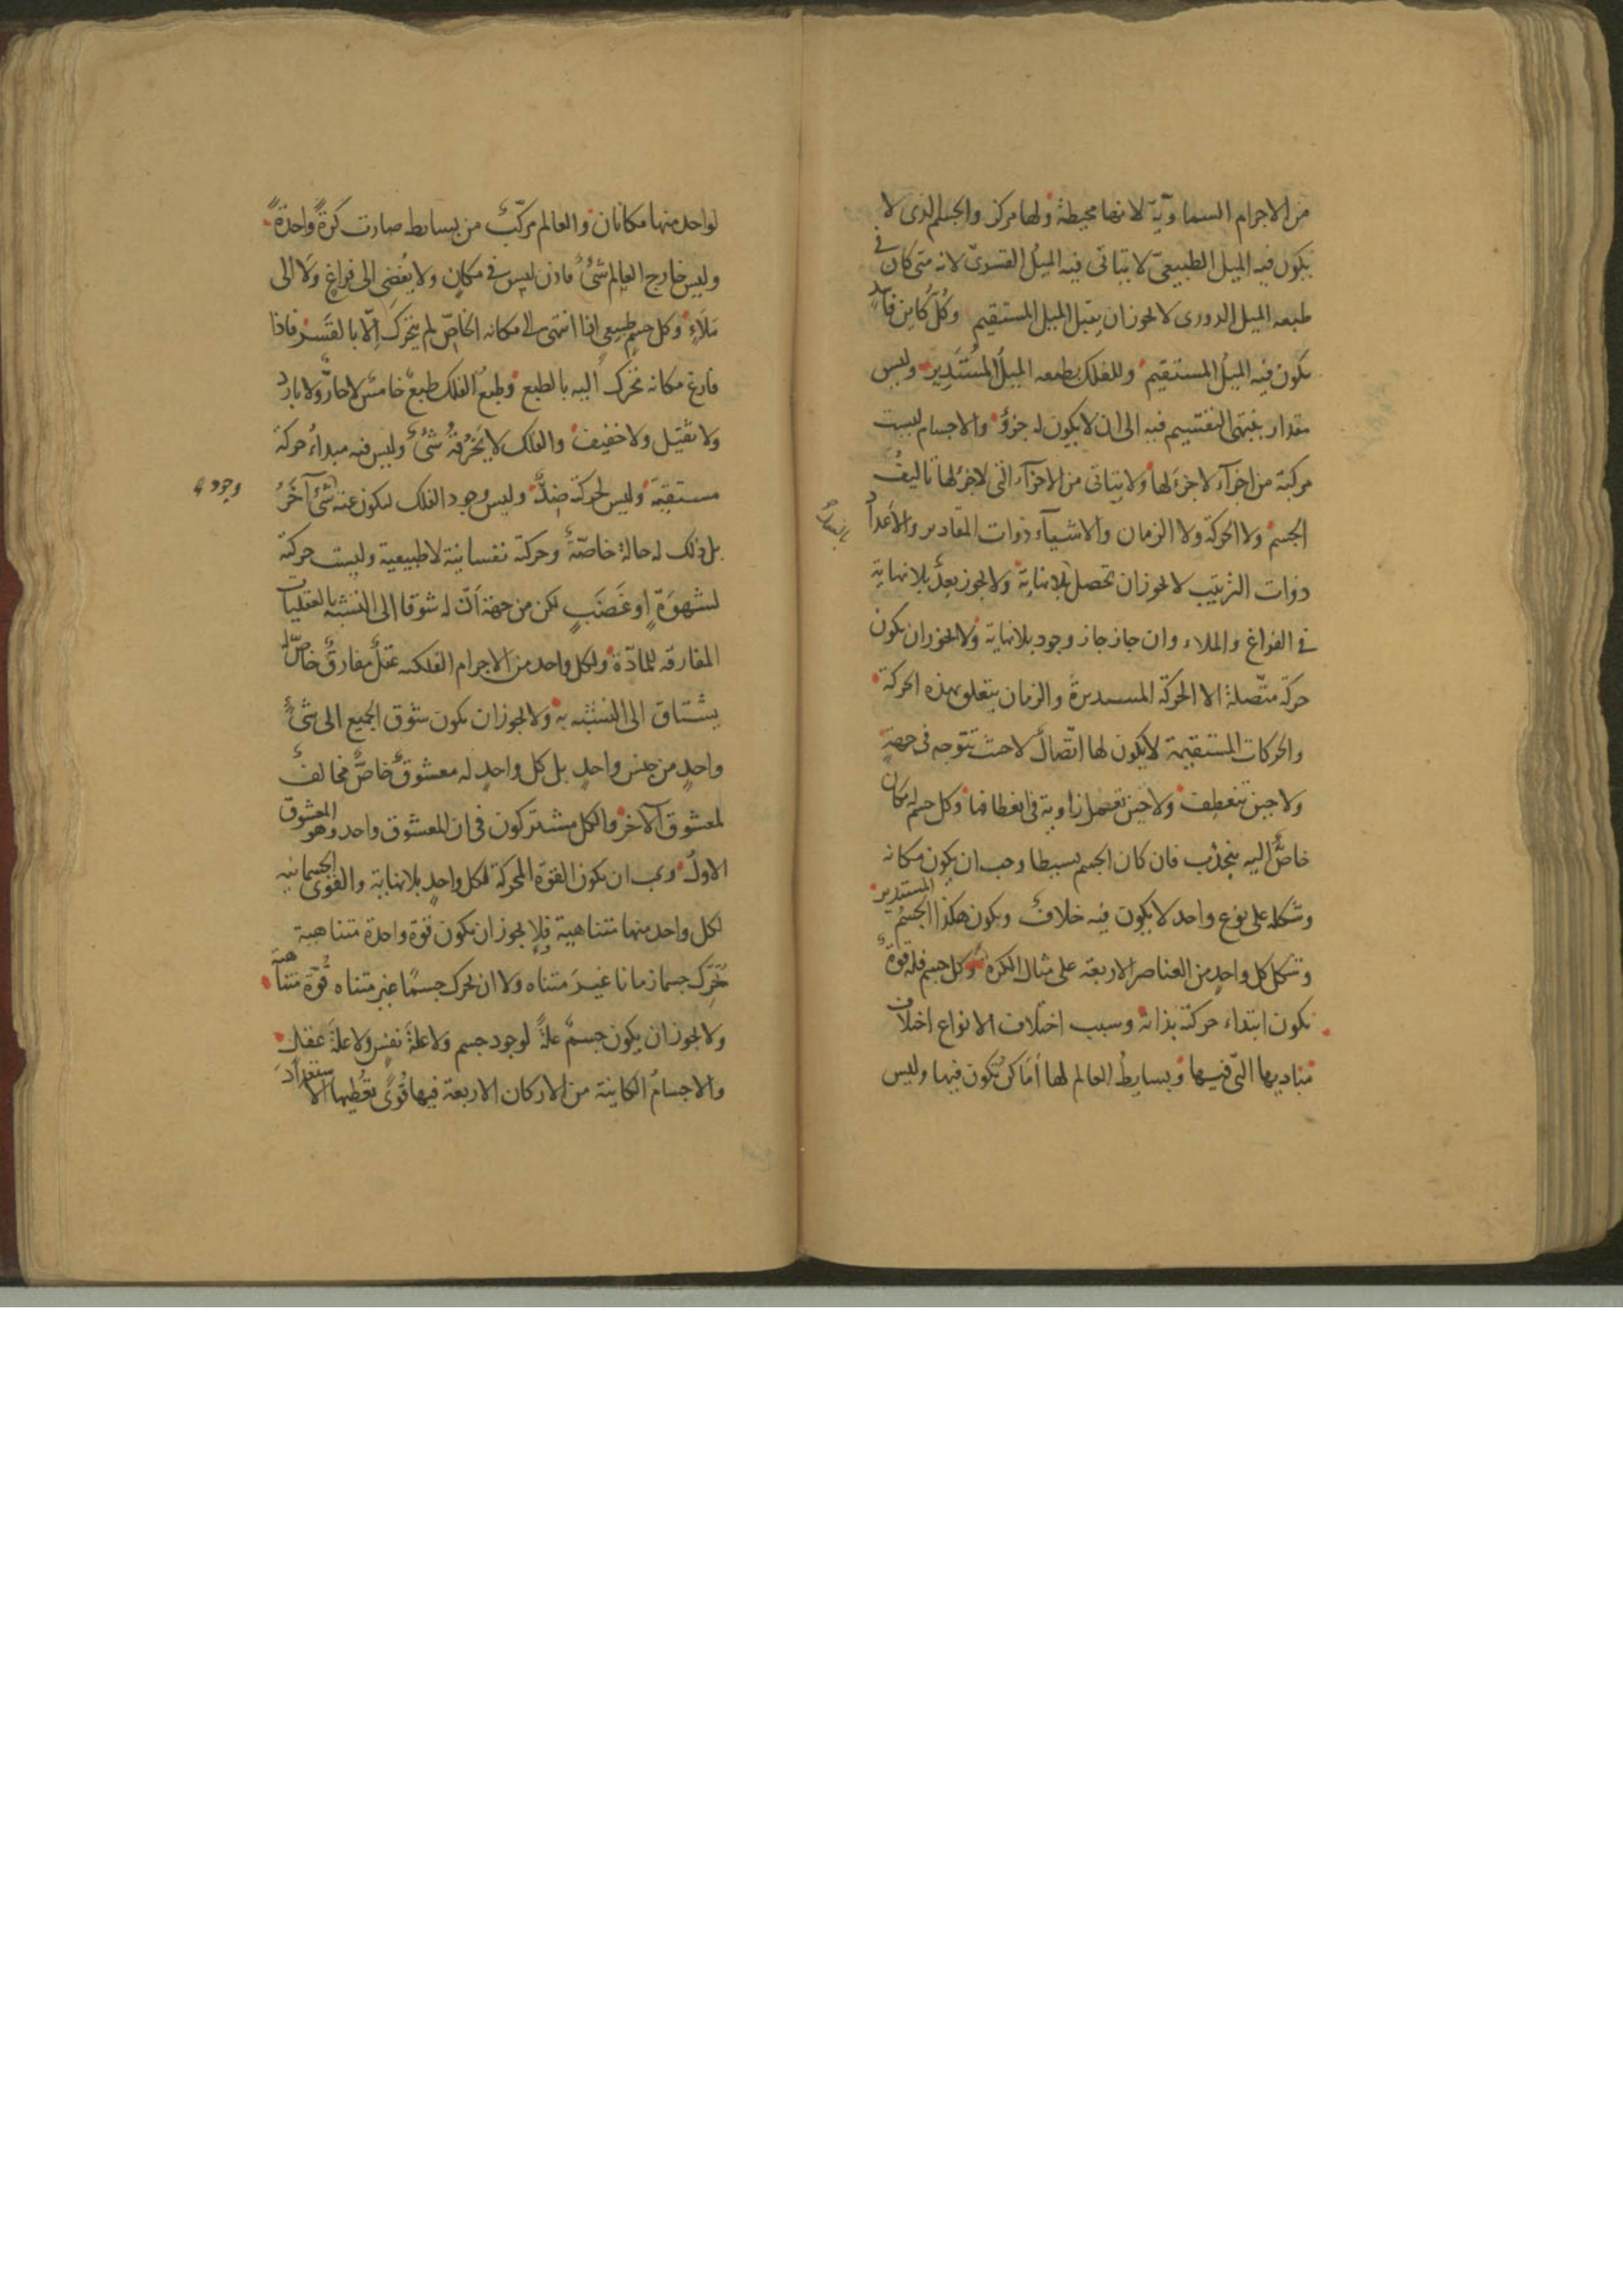 من الاجرام السماويّة لانها محيطة ولها مركز والجسم الذى لا
يكون فيه الميل الطبيعىّ لا يتاتى فيه الميل القسرىّ لانه متى كان فى
طبعه الميل الدورى لا يجوز ان يقبل الميل المستقيم وكلّ كاين فاسد
يكون فيه الميلُ المستقيم وللفلك بطبعه الميلُ المُستَدير وليس
مقدار ينتهى التقسيم فيه الى ان لا يكون له جزؤ والاجسام ليست
مركبة من اجزآء لا جزء لها ولا يتاتى من الاجزآء التى لا جزء لها تاليفُ
الجسم ولا الحركة ولا الزمان والاشيآء ذوات المقادير والاعداد
ذوات الترتيب لا يجوز ان تحصل بلا نهاية ولا يجوز بعدٌ بلا نهاية
فى الفراغ والملاء وان جاز جاز وجود بلا نهاية ولا يجوز ان يكون
حركة متّصلة الا الحركة المستديرة والزمان يتعلق بهذه الحركة
والحركات المستقيمة لا يكون لها اتّصالٌ لا حيث تتوجه فى جهةٍ
ولا حين تنعطف ولا حين تعمل زاوية فى انعطافها وكل جسم له مكان
خاصٌّ اليه ينجذب فان كان الجسم بسيطا وجب ان يكون مكانه
وشكله على نوع واحد لا يكون فيه خلافٌ ويكون هكذا الجسم المستدير
وشكل كل واحدٍ من العناصر الاربعة على مثال الكره وكل جسم فله قوةٌ
تكون ابتداء حركته بذاته وسبب اختلاف الانواع اختلاف
مباديها التى فيها وبسايطُ العالم لها اَمَاكن تكون فيها وليس
لواحد منها مكانان والعالم مركّبٌ من بسايط صارت كرةً واحدةً
وليس خارج العالم شئٌ فاذن ليس فى مكانٍ ولا يُفضى الى فراغٍ ولا الى
مَلَاءٍ وكل جسمٍ طبيعىٍ اذا انتهى الى مكانه الخاصّ لم يتحرك اِلّا بالقَسر فاذا
فارق مكانه تحرك اليه بالطبع وطبع الفلك طبعٌ خامسٌ لا حارٌّ ولا باردٌ
ولا ثقيل ولا خفيف والفلك لا يَخرُقُهُ شئٌ وليس فيه مبداءُ حركة
مستقيمة وليس لحركته ضِدٌّ وليس وجود الفلك ليكون عنه شئٌ آخَرُ
وجوده
بل ذلك له حالة خاصّةٌ وحركته نفسانية لا طبيعية وليست حركته
لشهوَةٍ او غَضَبٍ لكن من جهة اَنّ له شوقا الى التشبّه بالعقليات
المفارقه للمادّة ولكل واحد من الاجرام الفلكيه عقلٌ مفارقٌ خاصٌّ له
يشتاق الى التشبّه به ولا يجوز ان يكون شوق الجميع الى شئٍ
واحدٍ من جنس واحدٍ بل كل واحدٍ له معشوقٌ خاصٌّ مخالفٌ
لمعشوق الآخر والكل مشتركون فى ان المعشوق واحد وهو المعشوق
الاولُ ويجب ان يكون القوة المحركة لكل واحدٍ بلا نهاية والقوى الجسمانيه
لكل واحد منها متناهية فلا يجوز ان يكون قوة واحدة متناهية
تُحَرِّك جسما زمانا غيرَ متناه ولا ان يحرك جسمًا غير متناه قُوّة متناهية
ولا يجوز ان يكون جسمٌ علةً لوجود جسم ولا علة نفسٍ ولا علة عقلٍ
والاجسامُ الكاينة من الاركان الاربعة فيها قُوىً تُعطيها الاستعدادَ